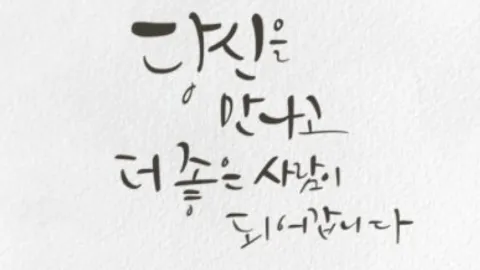 당신을
만나고
더 좋은 사람이
되어갑니다